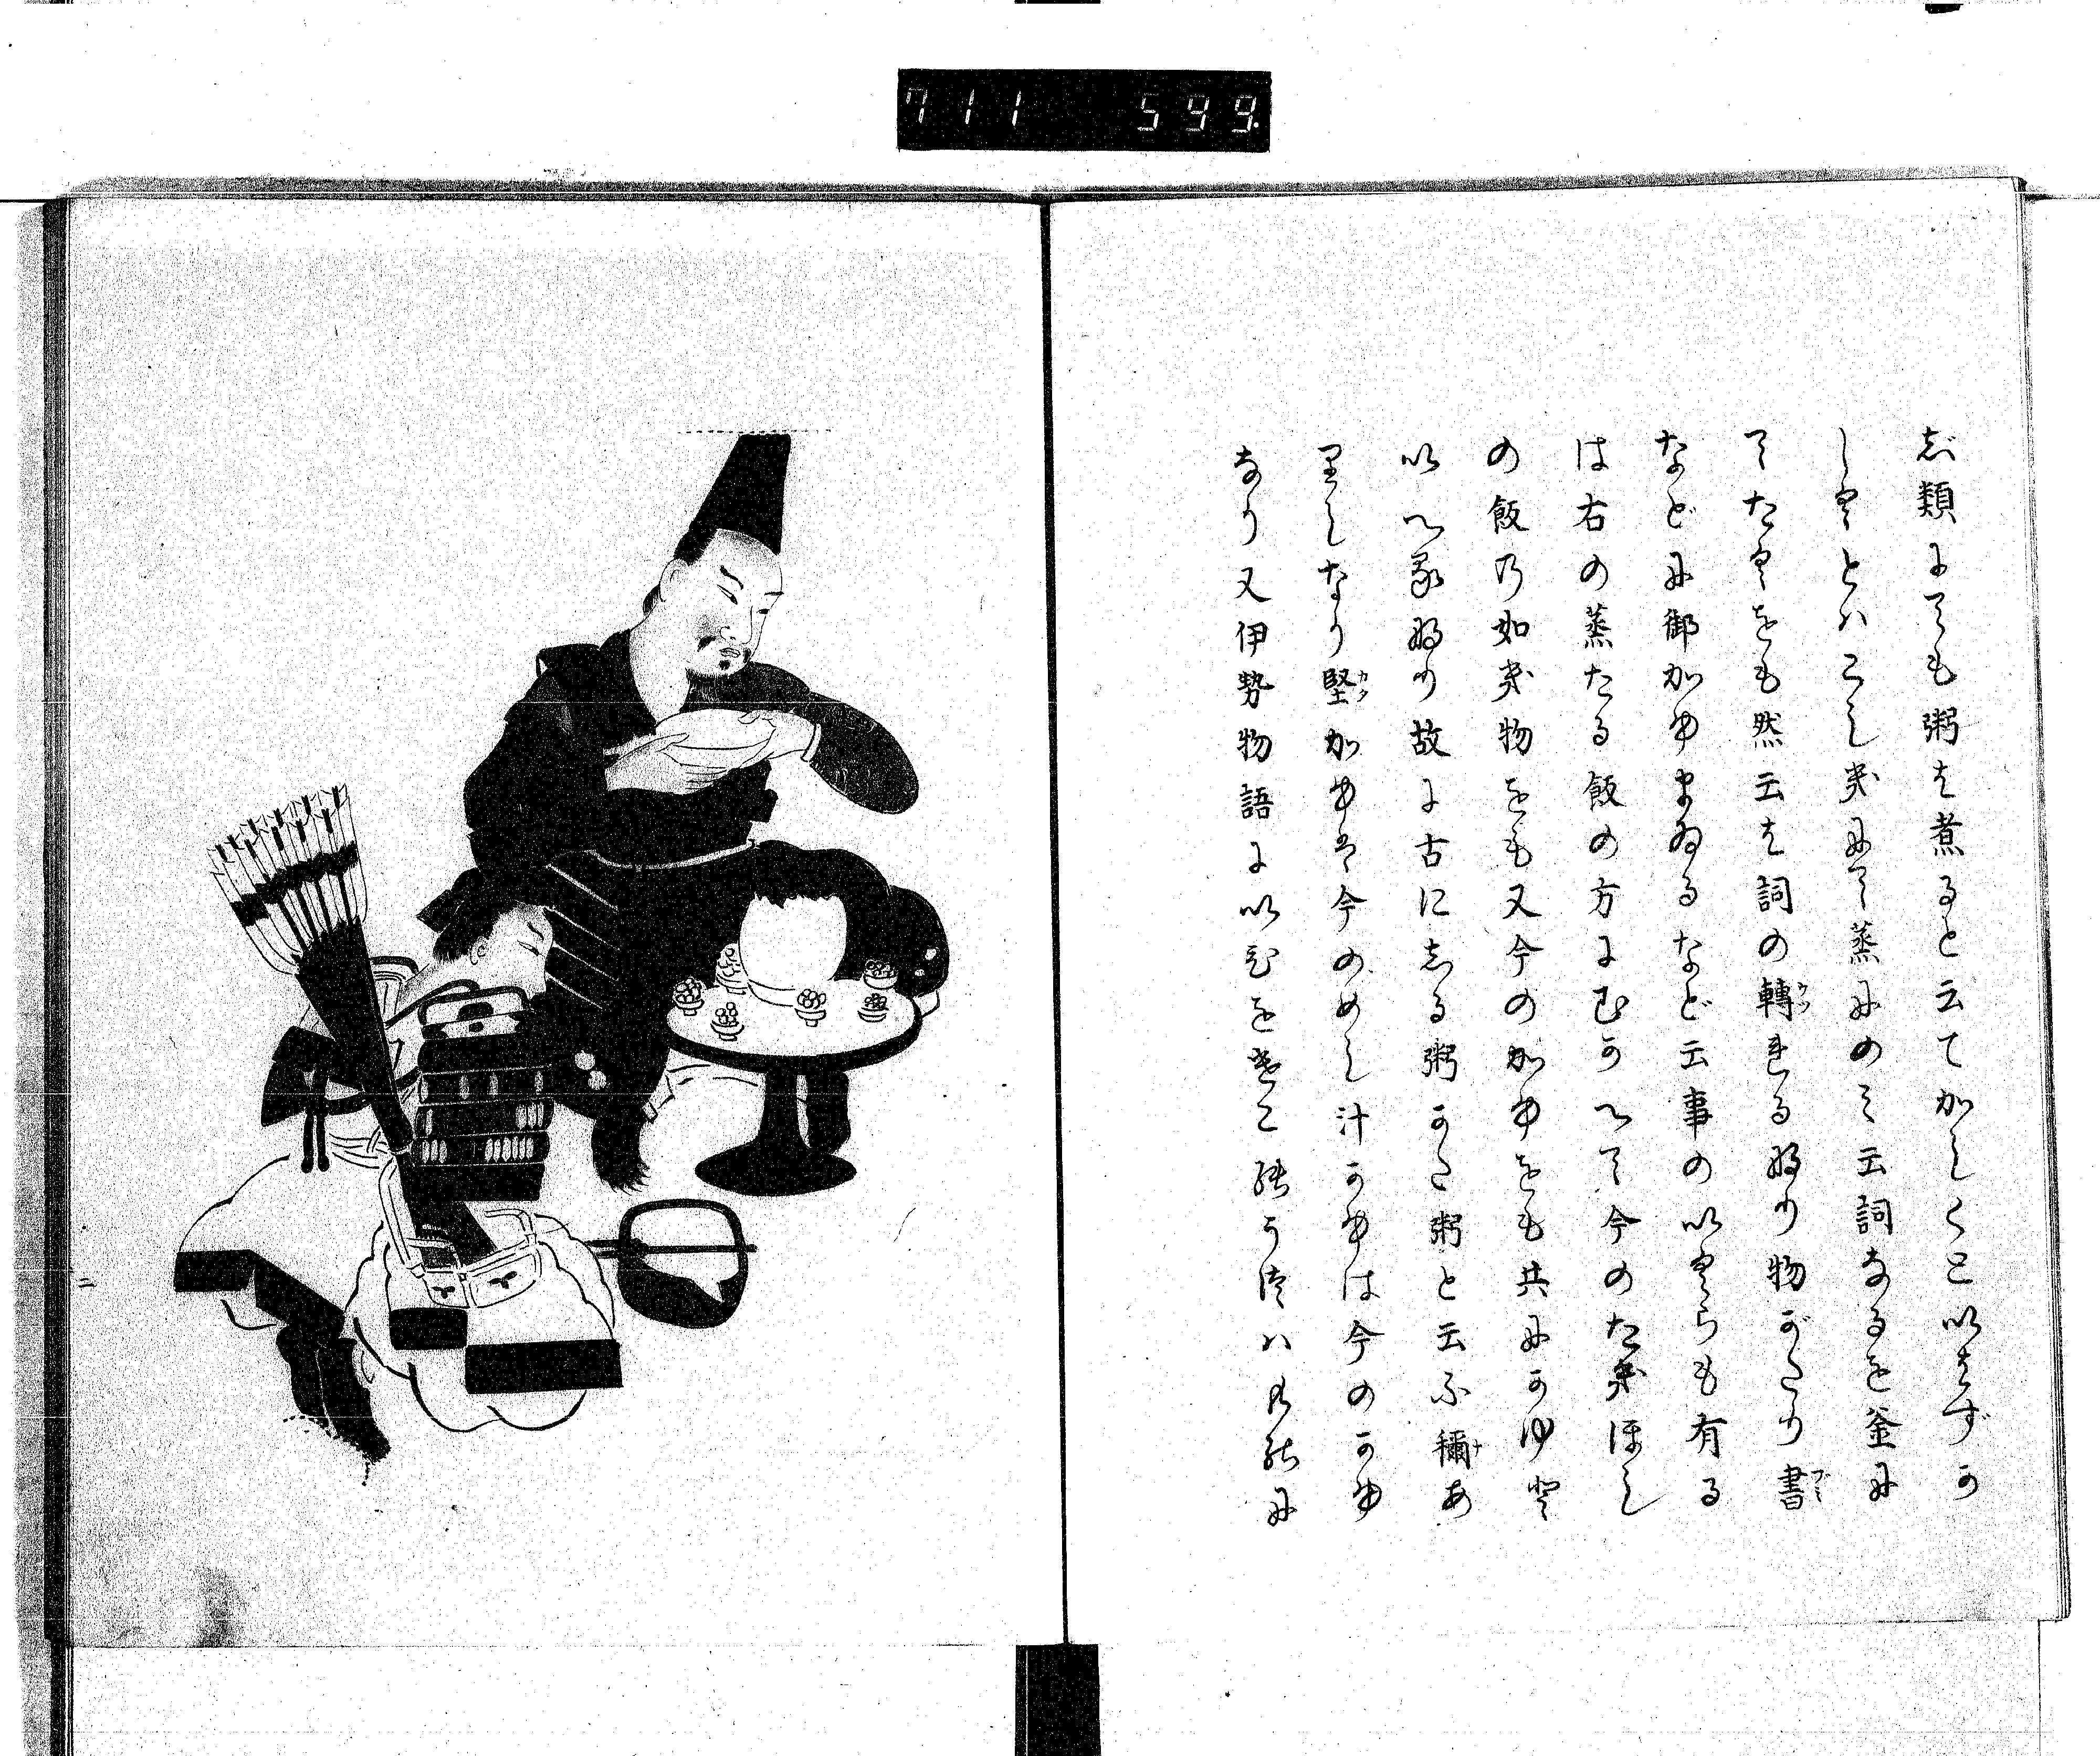 711 599.
志゛類にても粥を煮ると云てかしくといはずか
しくとはこしきにて蒸にのみ云詞なるを釜に
てたくをも然云は詞の轉れるなり物がたり書
などに御かゆまゐるなど云事のいくらも有る
は右の蒸たる飯の方にむかへて今のたきほし
の飯の如き物をも又今のかゆをも共にかゆと
いへるなり故に古に志る粥かた粥と云ふ稱あ
りしなり堅かゆは今のめし汁かゆは今のかゆ
なり又伊勢物語に